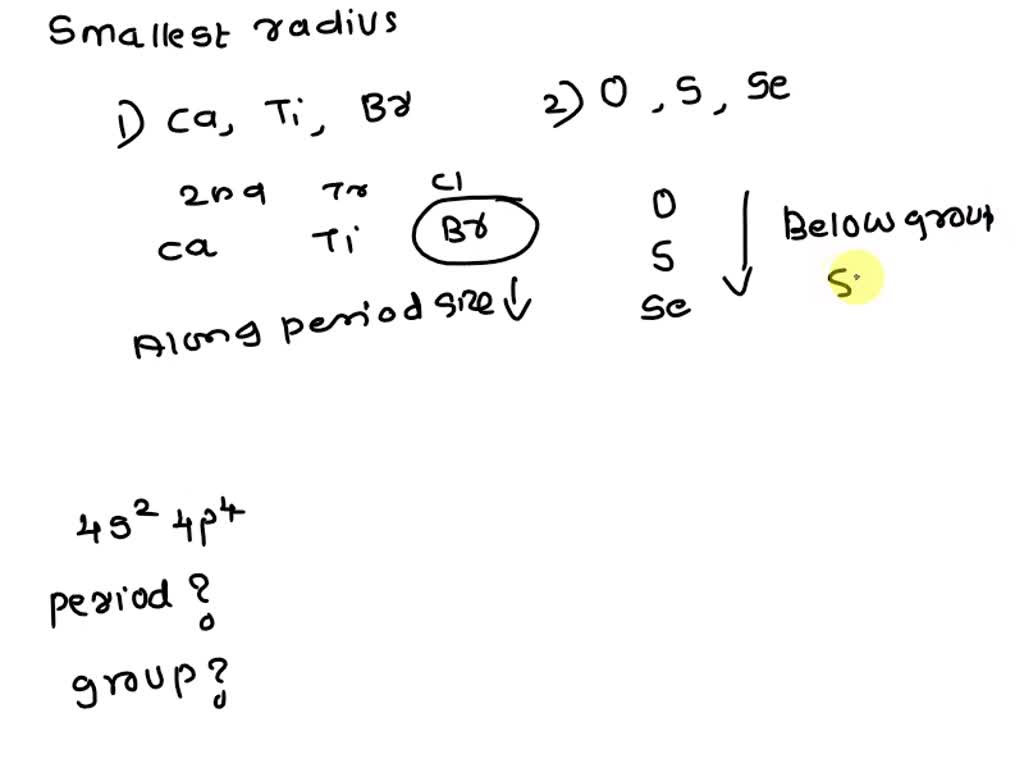 Smallest radius
1) Ca, Ti, Br
2) O, S, Se
2nd Tr Cl
Ca Ti Br
Along period size ↓
O
S
Se
Below group
S
4s² 4p⁴
period?
group?